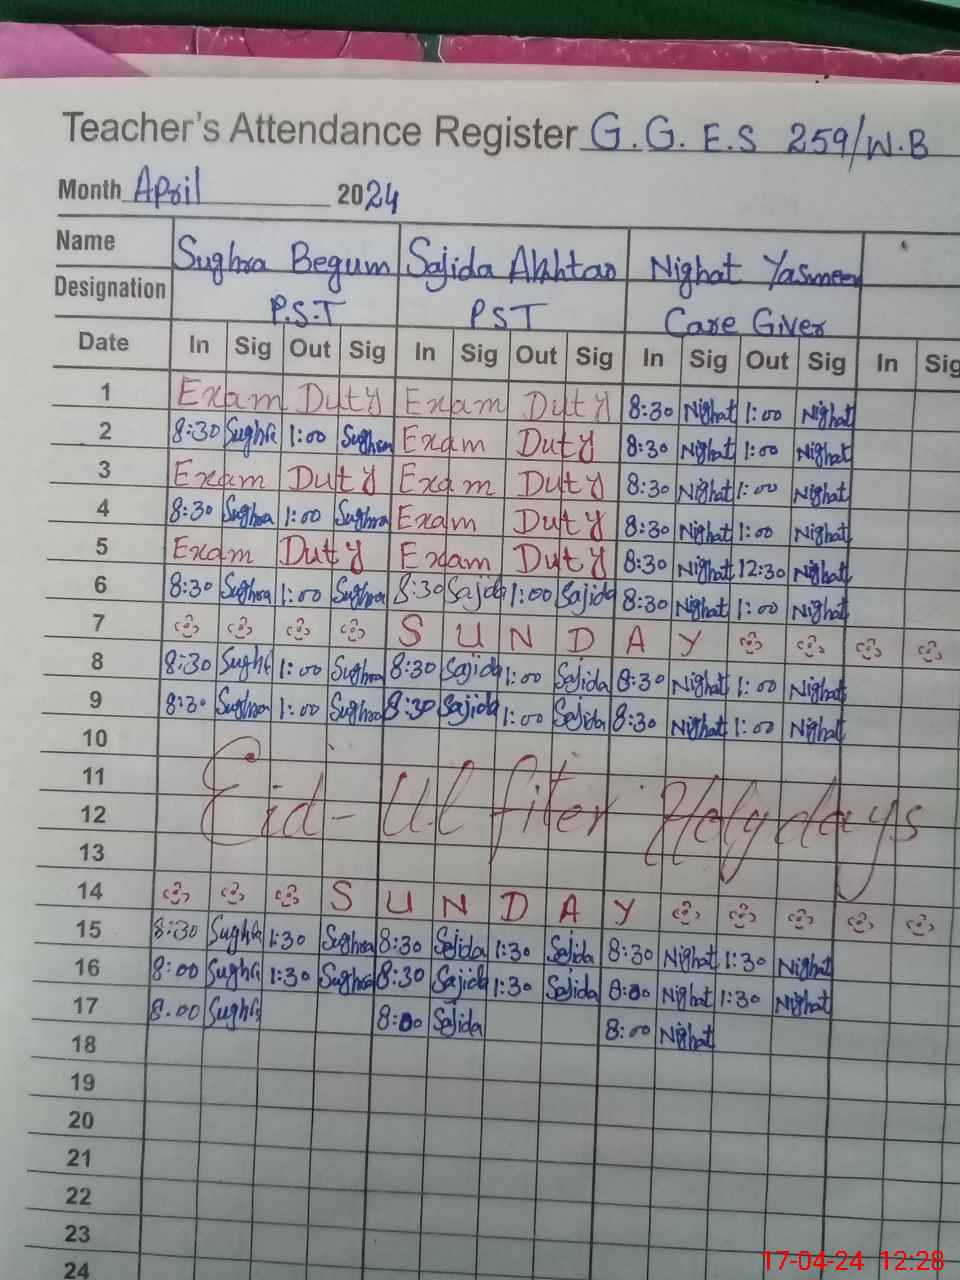 Teacher's Attendance Register G.G.E.S 259/W.B
Month April 2024
Name Sughra Begum Sajida Akhtar Nighat Yasmeen
Designation P.S.T PST Care Giver
Date In Sig Out Sig In Sig Out Sig In Sig Out Sig In Sig
1 Exam Duty Exam Duty 8:30 Nighat 1:00 Nighat
2 8:30 Sughra 1:00 Sughra Exam Duty 8:30 Nighat 1:00 Nighat
3 Exam Duty Exam Duty 8:30 Nighat 1:00 Nighat
4 8:30 Sughra 1:00 Sughra Exam Duty 8:30 Nighat 1:00 Nighat
5 Exam Duty Exam Duty 8:30 Nighat 12:30 Nighat
6 8:30 Sughra 1:00 Sughra 8:30 Sajida 1:00 Sajida 8:30 Nighat 1:00 Nighat
7 SUNDAY
8 8:30 Sughra 1:00 Sughra 8:30 Sajida 1:00 Sajida 8:30 Nighat 1:00 Nighat
9 8:30 Sughra 1:00 Sughra 8:30 Sajida 1:00 Sajida 8:30 Nighat 1:00 Nighat
10
11
12 Eid-Ul fiter Holydays
13
14 SUNDAY
15 8:30 Sughra 1:30 Sughra 8:30 Sajida 1:30 Sajida 8:30 Nighat 1:30 Nighat
16 8:00 Sughra 1:30 Sughra 8:30 Sajida 1:30 Sajida 8:00 Nighat 1:30 Nighat
17 8:00 Sughra 8:00 Sajida 8:00 Nighat
18
19
20
21
22
23
24
17-04-24 12:28